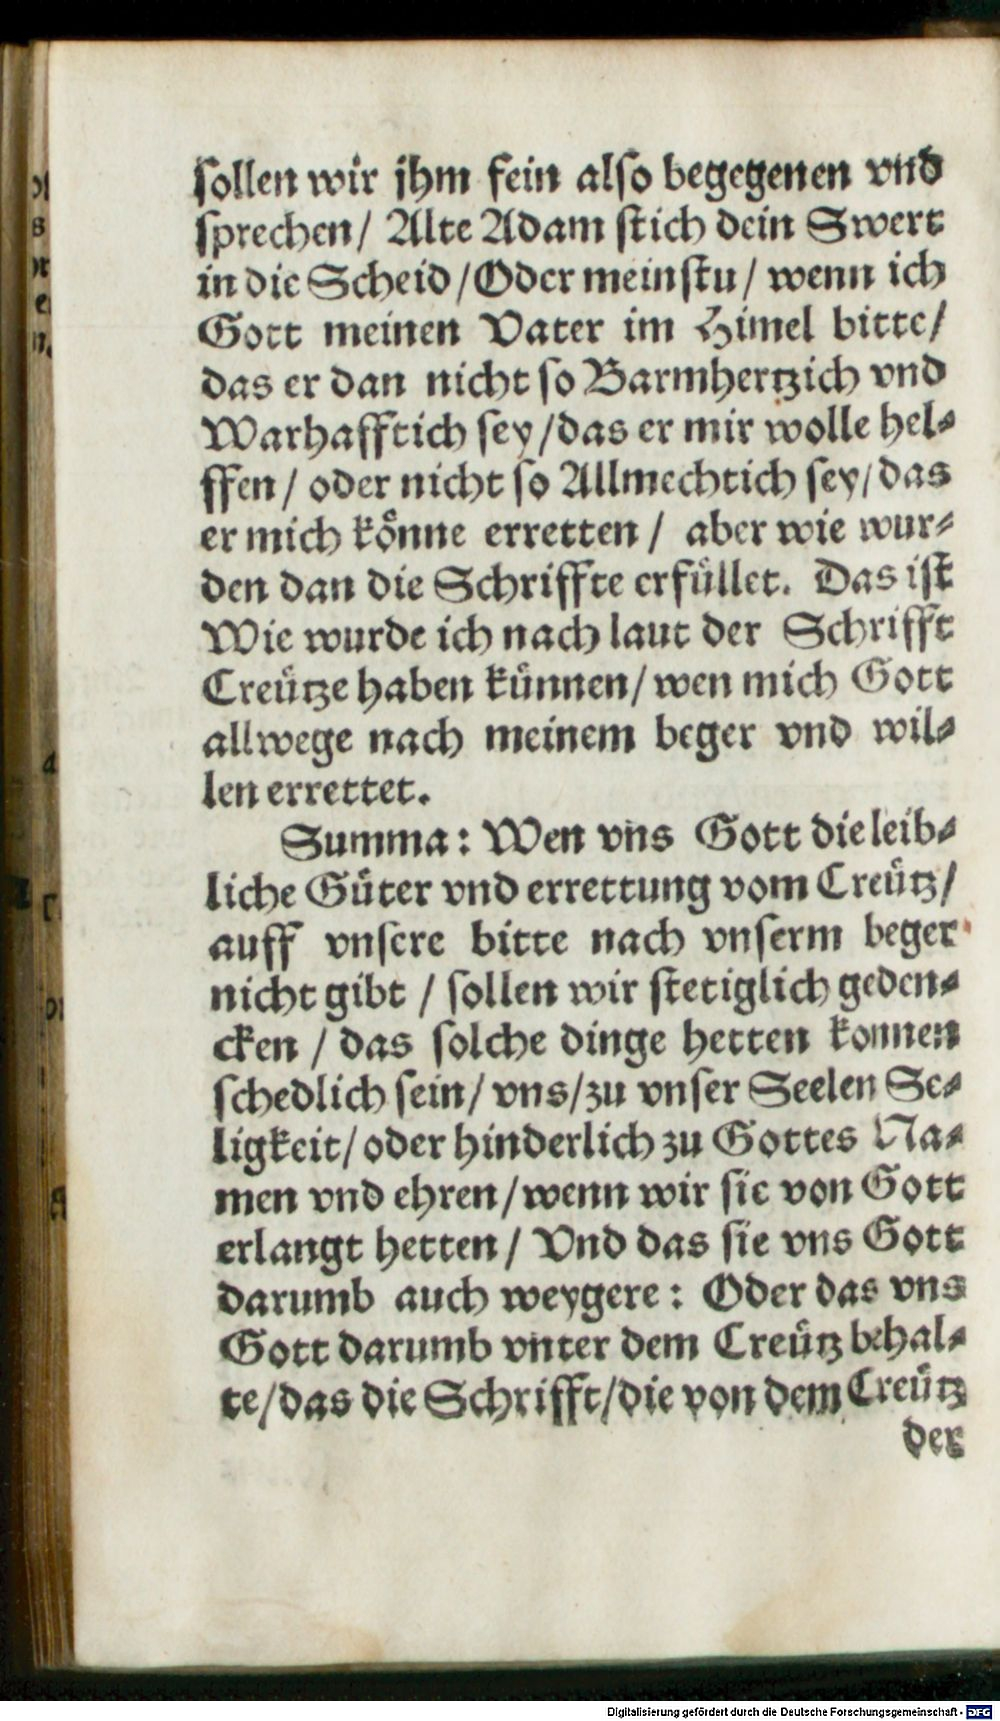 sollen wir jhm fein also begegenen vnd
sprechen/ Alte Adam stich dein Swert
in die Scheid/Oder meinstu/ wenn ich
Gott meinen Vater im Himel bitte/
das er dan nicht so Barmhertzich vnd
Warhafftich sey/das er mir wolle hel-
ffen/ oder nicht so Allmechtich sey/das
er mich könne erretten/ aber wie wur-
den dan die Schriffte erfüllet. Das ist
Wie wurde ich nach laut der Schrifft
Creütze haben künnen/wen mich Gott
allwege nach meinem beger vnd wil-
len errettet.
Summa: Wen vns Gott die leib-
liche Güter vnd errettung vom Creütz/
auff vnsere bitte nach vnserm beger
nicht gibt / sollen wir stetiglich geden-
cken / das solche dinge hetten konnen
schedlich sein/ vns/zu vnser Seelen Se-
ligkeit/oder hinderlich zu Gottes Na-
men vnd ehren/wenn wir sie von Gott
erlangt hetten/ Vnd das sie vns Gott
darumb auch weygere: Oder das vns
Gott darumb vnter dem Creütz behal-
te/das die Schrifft/die von dem Creütz
der
Digitalisierung gefördert durch die Deutsche Forschungsgemeinschaft - DFG